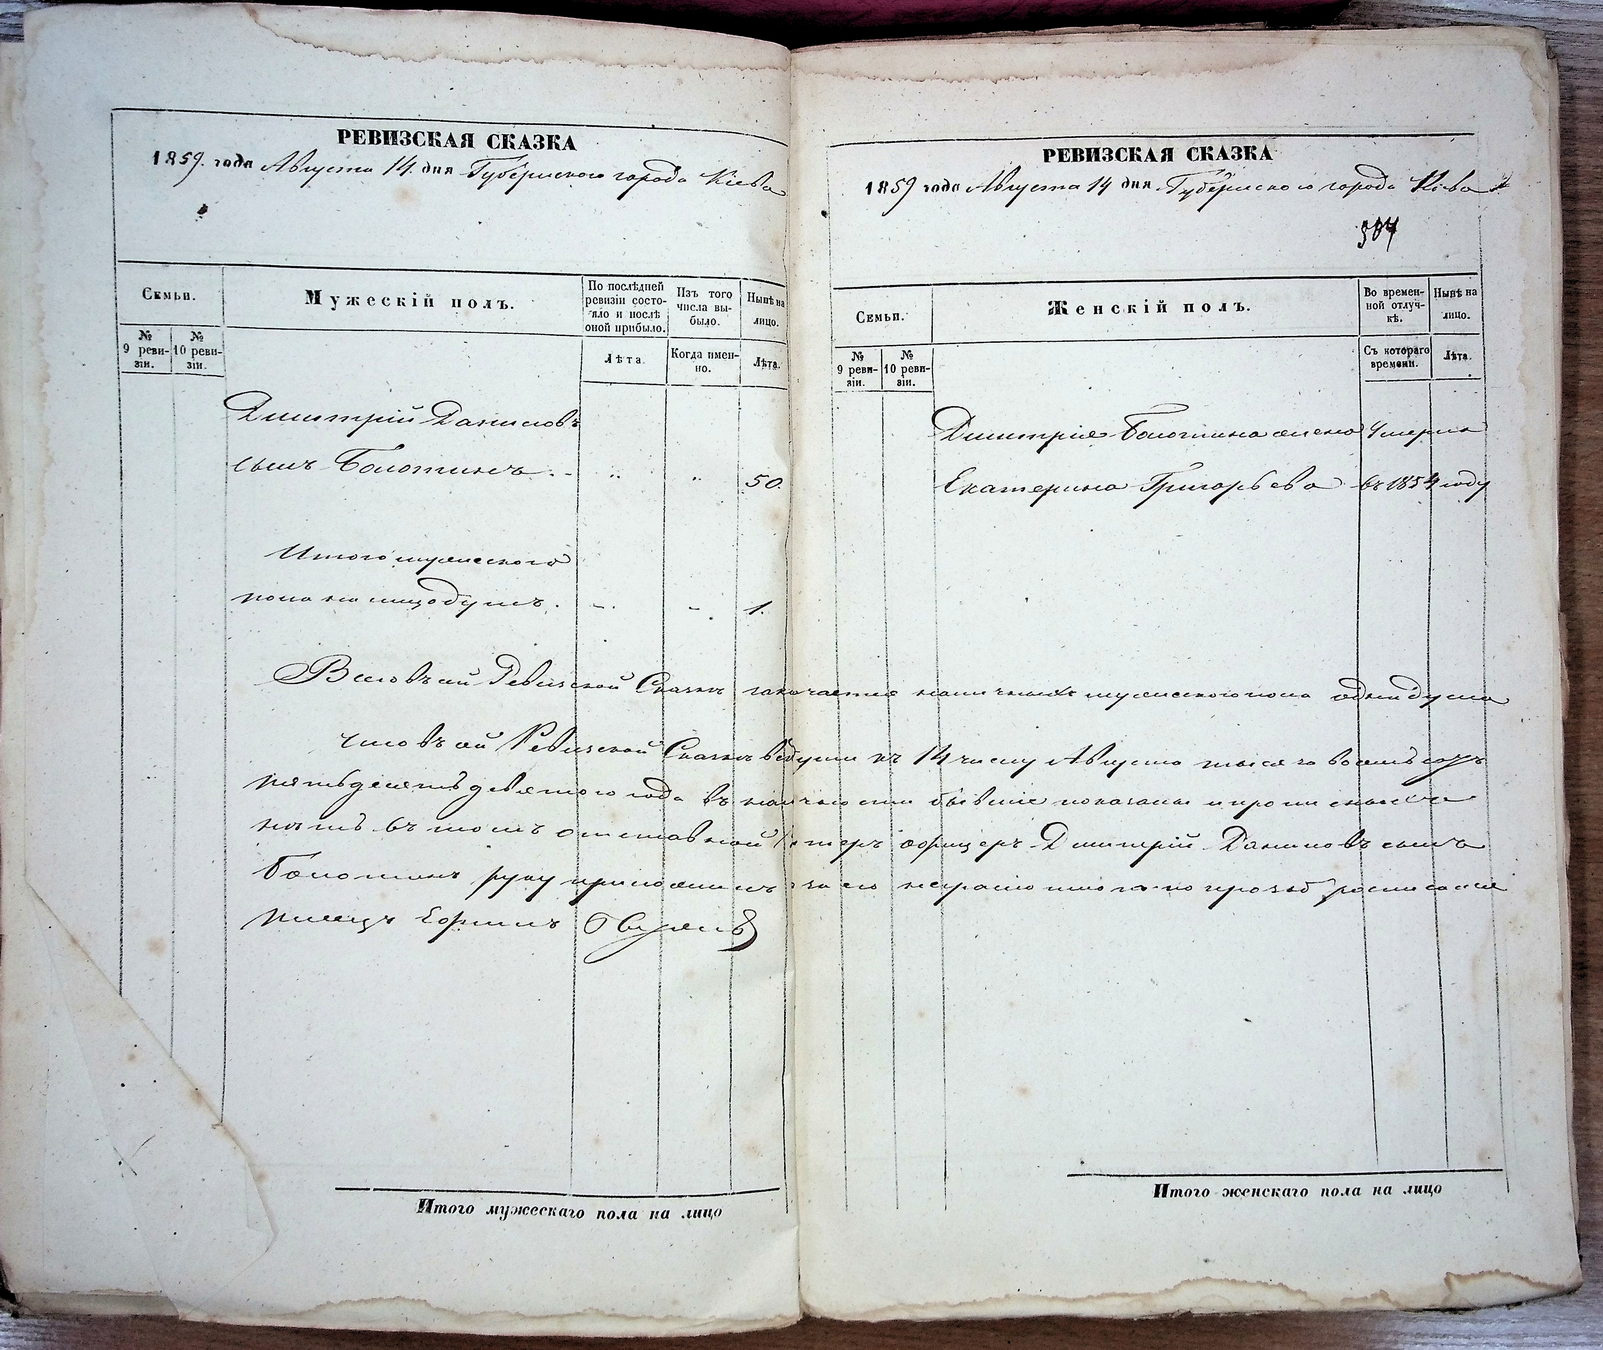 РЕВИЗСКАЯ СКАЗКА
1859. года Августа 14. дня Губернского города Кіева
Семьи.
Мужескій полъ.
По послѣдней ревизіи состояло и послѣ оной прибыло.
Изъ того числа выбыло.
Нынѣ на лицо.
№ 9 ревизіи.
№ 10 ревизіи.
Лѣта.
Когда именно.
Лѣта.
Дмитрій Даниловъ
сынъ Болотинъ. - " " 50.
Итого мужеского
пола на лицо душъ. - - 1.
РЕВИЗСКАЯ СКАЗКА
1859 года Августа 14 дня Губернского города Кіева
504
Семьи.
Женскій полъ.
Во временной отлучкѣ.
Нынѣ на лицо.
№ 9 ревизіи.
№ 10 ревизіи.
Съ котораго времени.
Лѣта.
Дмитрія Болотина жена умерла
Екатерина Григорьева въ 1854 году
Всего въ сей Ревизской Сказкѣ наличныхъ мужеского пола одна душа
Что въ сей Ревизской Сказкѣ все души къ 14 числу Августа тысяча восемьсотъ
пятьдесятъ девятого года въ наличности бывшіе показаны и прописныхъ
нѣтъ въ томъ отставной унтеръ офицеръ Дмитрій Даниловъ сынъ
Болотинъ руку приложилъ а за его неграмотного по прозбѣ росписался
писецъ
Итого мужескаго пола на лицо
Итого женскаго пола на лицо